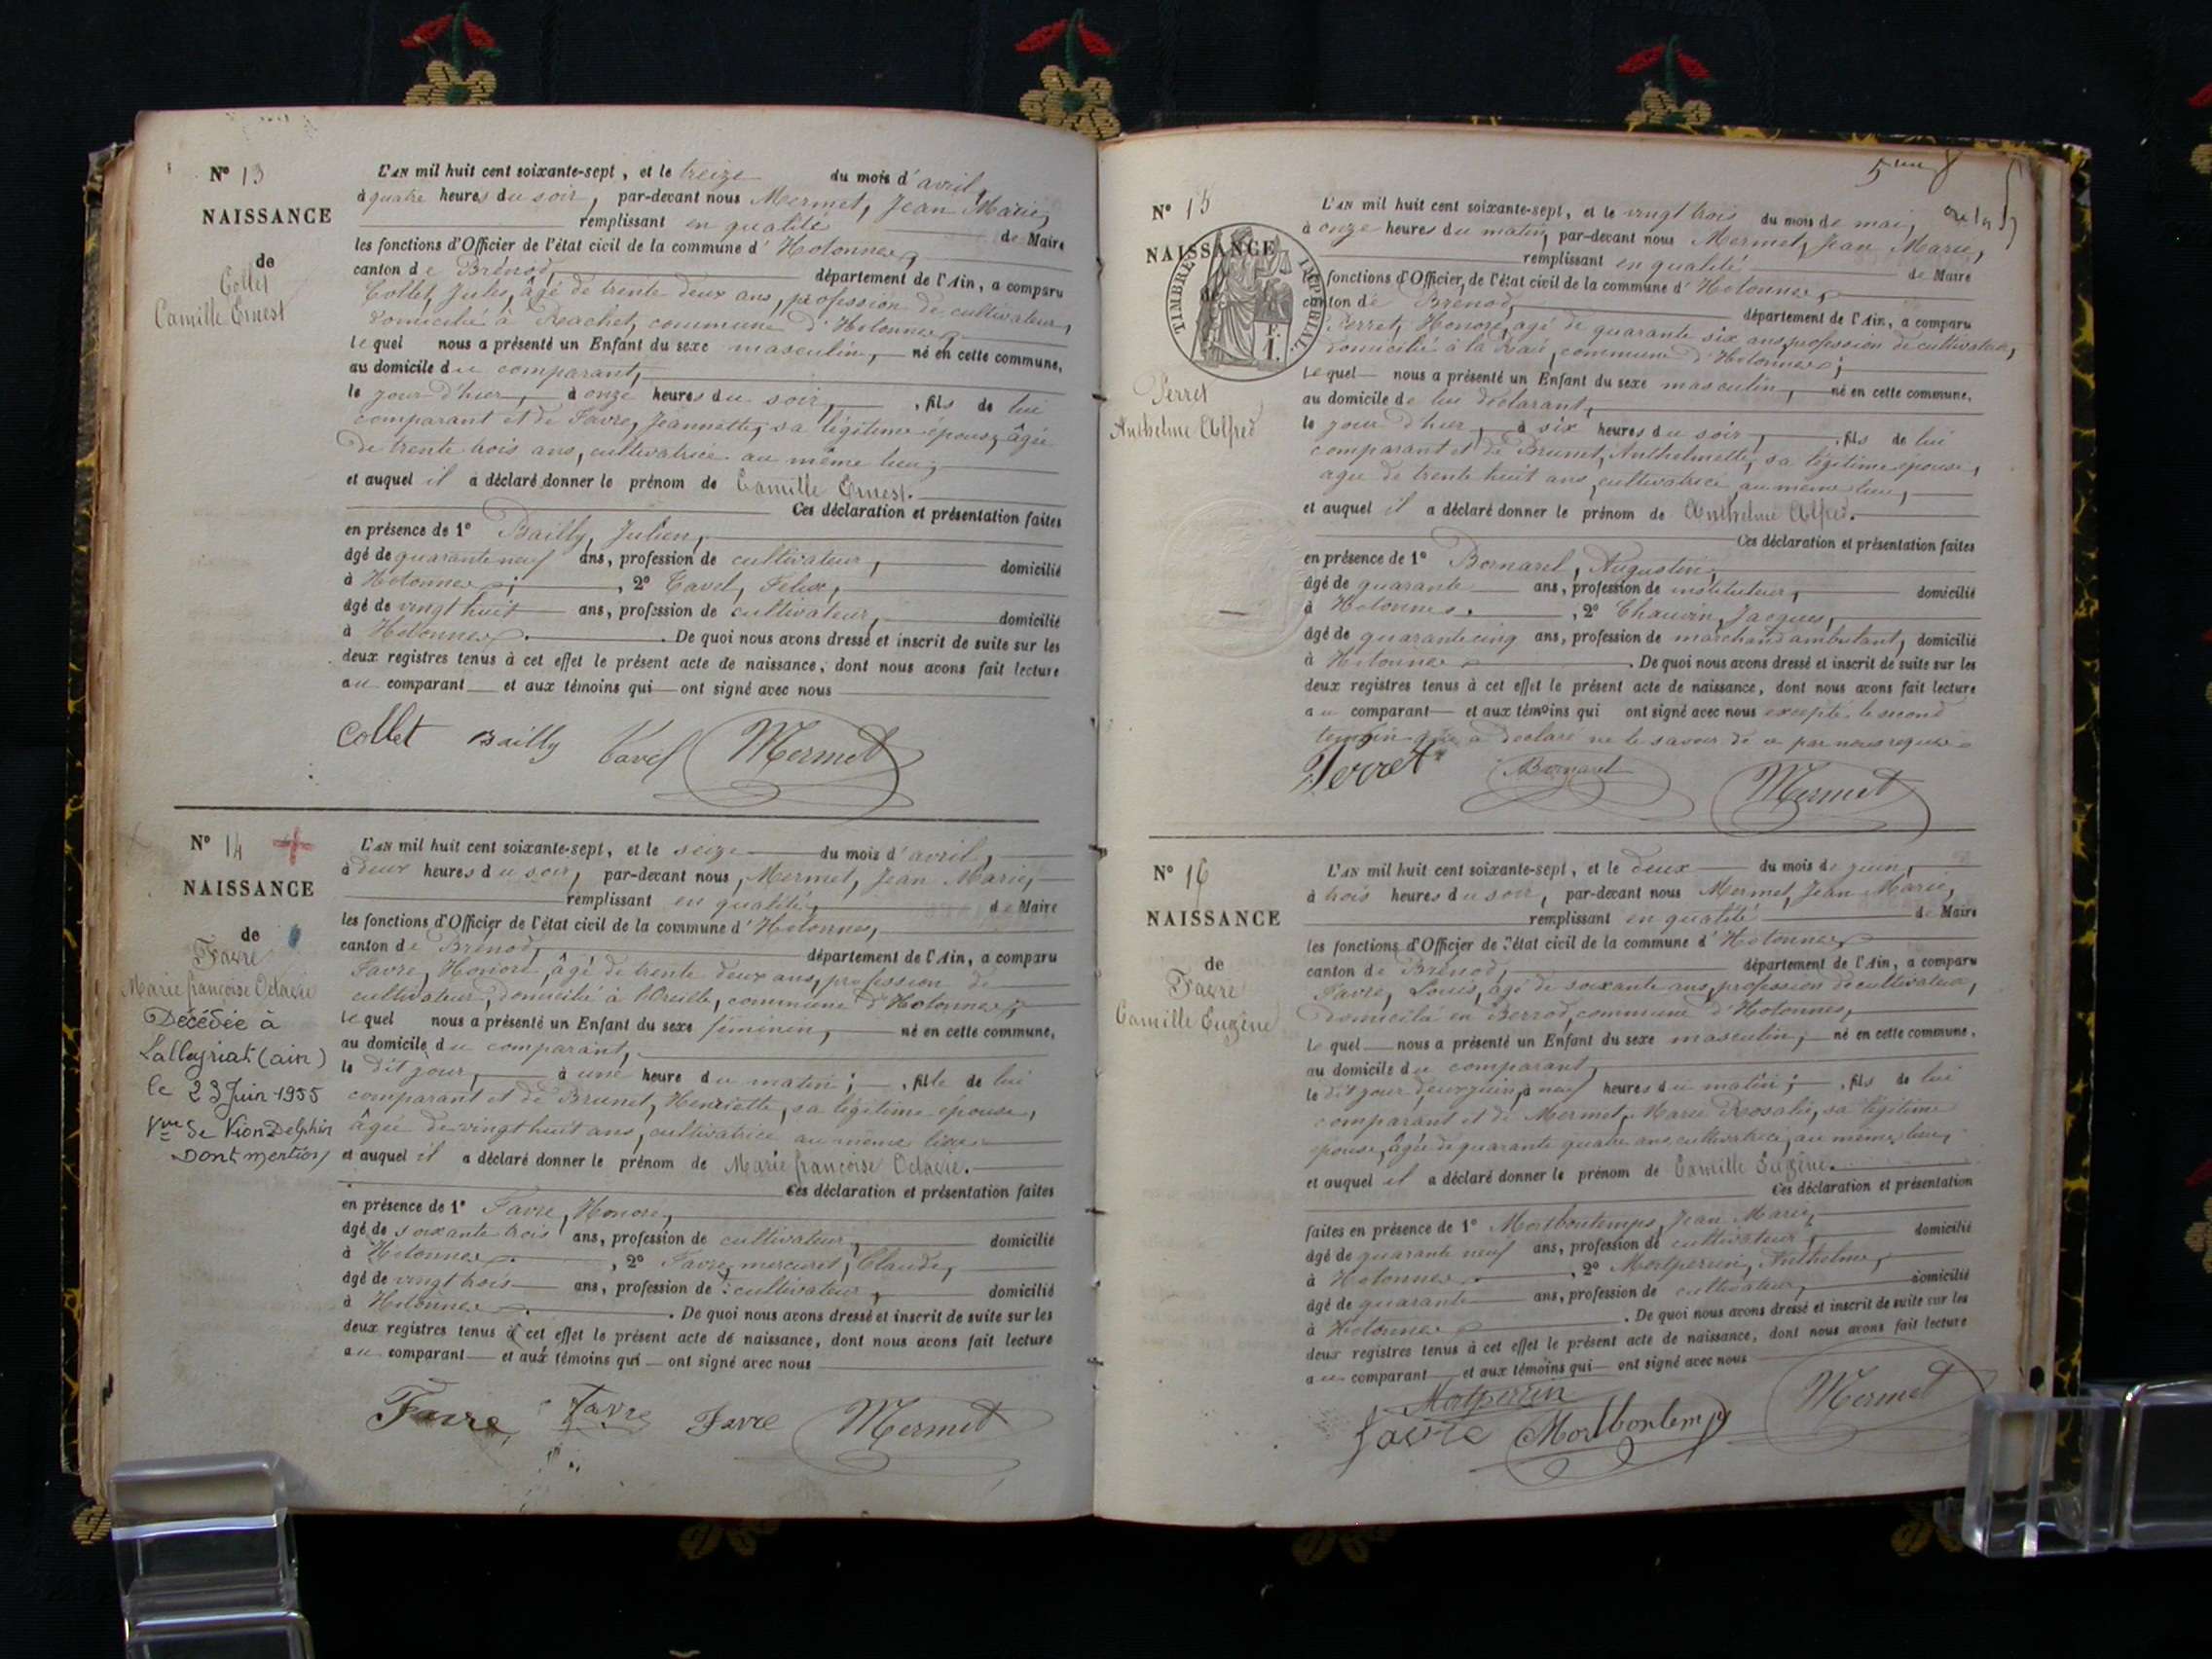 N° 13
NAISSANCE
de
Collet
Camille Ernest
L'AN mil huit cent soixante-sept, et le treize du mois d'avril,
à quatre heures du soir, par-devant nous Mermet, Jean Marie,
remplissant en qualité de Maire
les fonctions d'Officier de l'état civil de la commune d'Hotonnes,
canton de Brénod, département de l'Ain, a comparu
Collet, Jules, âgé de trente deux ans, profession de cultivateur,
domicilié à Reachet, commune d'Hotonnes,
lequel nous a présenté un Enfant du sexe masculin, né en cette commune,
au domicile du comparant,
le jour d'hier, à onze heures du soir, fils de lui
comparant et de Favre, Jeannette, sa légitime épouse, âgée
de trente trois ans, cultivatrice au même lieu;
et auquel il a déclaré donner le prénom de Camille Ernest.
Ces déclaration et présentation faites
en présence de 1° Bailly, Julien,
âgé de quarante neuf ans, profession de cultivateur, domicilié
à Hotonnes; 2° Tavel, Félix,
âgé de vingt huit ans, profession de cultivateur, domicilié
à Hotonnes. De quoi nous avons dressé et inscrit de suite sur les
deux registres tenus à cet effet le présent acte de naissance, dont nous avons fait lecture
au comparant et aux témoins qui ont signé avec nous
Collet Bailly Tavel Mermet
N° 14
NAISSANCE
de
Favre
Marie françoise Octavie
Décédée à
Lalleyriat (ain)
le 23 Juin 1955
Vve de Vion Delphin
Dont mention
L'AN mil huit cent soixante-sept, et le seize du mois d'avril,
à deux heures du soir, par-devant nous, Mermet, Jean Marie,
remplissant en qualité, de Maire
les fonctions d'Officier de l'état civil de la commune d'Hotonnes,
canton de Brénod, département de l'Ain, a comparu
Favre, Honoré, âgé de trente deux ans, profession de
cultivateur, domicilié à l'Oreille, commune d'Hotonnes,
lequel nous a présenté un Enfant du sexe féminin, né en cette commune,
au domicile du comparant,
le dit jour, à une heure du matin; fille de lui
comparant et de Brunet, Henriette, sa légitime épouse,
âgée de vingt huit ans, cultivatrice au même lieu
et auquel il a déclaré donner le prénom de Marie françoise Octavie.
Ces déclaration et présentation faites
en présence de 1° Favre, Honoré,
âgé de soixante trois ans, profession de cultivateur, domicilié
à Hotonnes. 2° Favre mercuret, Claude,
âgé de vingt trois ans, profession de cultivateur, domicilié
à Hotonnes. De quoi nous avons dressé et inscrit de suite sur les
deux registres tenus à cet effet le présent acte de naissance, dont nous avons fait lecture
au comparant et aux témoins qui ont signé avec nous
Favre Favre Favre Mermet
N° 15
NAISSANCE
de
TIMBRES IMPERIAL
Perret
Anthelme Alfred
L'AN mil huit cent soixante-sept, et le vingt trois du mois de mai,
à onze heures du matin, par-devant nous Mermet, Jean Marie,
remplissant en qualité de Maire
les fonctions d'Officier de l'état civil de la commune d'Hotonnes,
canton de Brénod, département de l'Ain, a comparu
Perret, Honoré, âgé de quarante six ans, profession de cultivateur,
domicilié à la commune d'Hotonnes;
lequel nous a présenté un Enfant du sexe masculin, né en cette commune,
au domicile de lui déclarant,
le jour d'hier, à six heures du soir, fils de lui
comparant et de Brunet, Anthelmette, sa légitime épouse,
agée de trente huit ans, cultivatrice au même lieu,
et auquel il a déclaré donner le prénom de Anthelme Alfred.
Ces déclaration et présentation faites
en présence de 1° Bornarel, Augustin,
âgé de quarante ans, profession de instituteur, domicilié
à Hotonnes. 2° Chauvin, Jacques,
âgé de quarante cinq ans, profession de marchand ambulant, domicilié
à Hotonnes. De quoi nous avons dressé et inscrit de suite sur les
deux registres tenus à cet effet le présent acte de naissance, dont nous avons fait lecture
au comparant et aux témoins qui ont signé avec nous excepté le second
témoin qui a déclaré ne le savoir de ce par nous requis
Perret Bornarel Mermet
N° 16
NAISSANCE
de
Favre
Camille Eugène
L'AN mil huit cent soixante-sept, et le deux du mois de juin,
à trois heures du soir, par-devant nous Mermet, Jean Marie,
remplissant en qualité de Maire
les fonctions d'Officier de l'état civil de la commune d'Hotonnes
canton de Brénod, département de l'Ain, a comparu
Favre, Louis, âgé de soixante ans, profession de cultivateur,
domicilié en Berrod, commune d'Hotonnes,
lequel nous a présenté un Enfant du sexe masculin, né en cette commune,
au domicile du comparant,
le dit jour, deux juin, à neuf heures du matin; fils de lui
comparant et de Mermet, Marie Rosalie, sa légitime
épouse, âgée de quarante quatre ans, cultivatrice, au même lieu,
et auquel il a déclaré donner le prénom de Camille Eugène.
Ces déclaration et présentation
faites en présence de 1° Montbontemps, Jean Marie,
âgé de quarante neuf ans, profession de cultivateur, domicilié
à Hotonnes. 2° Anthelme,
âgé de quarante ans, profession de cultivateur, domicilié
à Hotonnes. De quoi nous avons dressé et inscrit de suite sur les
deux registres tenus à cet effet le présent acte de naissance, dont nous avons fait lecture
au comparant et aux témoins qui ont signé avec nous
favre Mermet